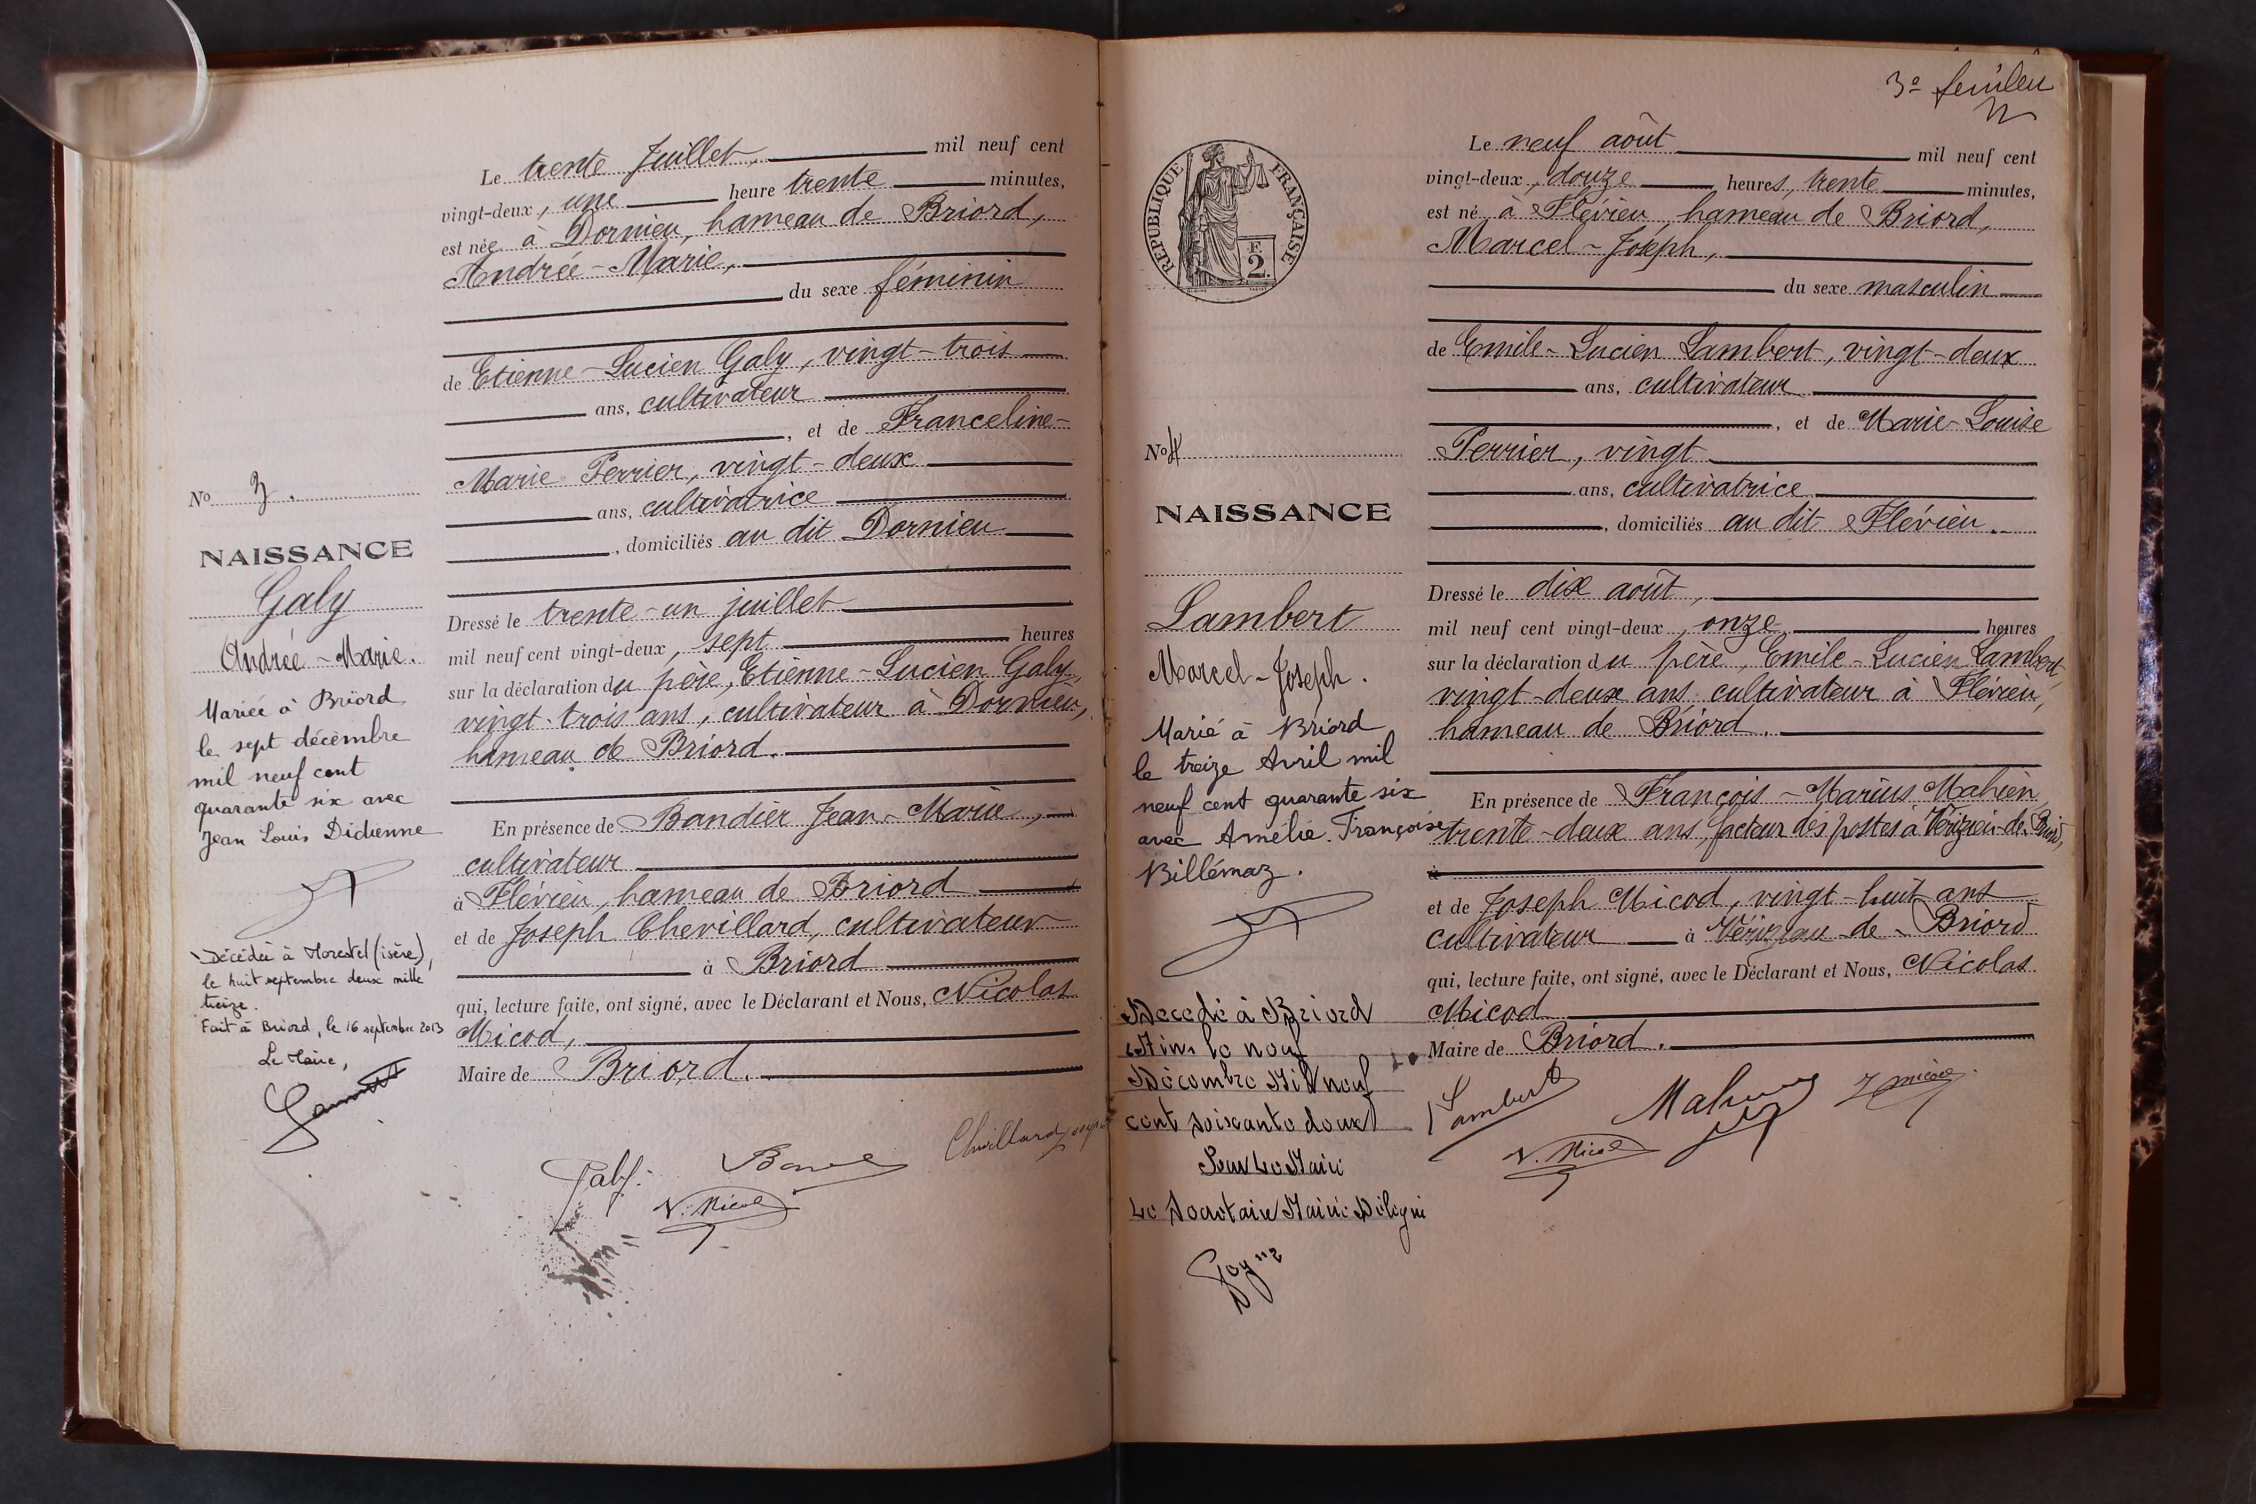 Le trente Juillet, mil neuf cent
vingt-deux, une heure trente minutes,
est née à Dornieu, hameau de Briord,
Andrée-Marie,
du sexe féminin
de Etienne-Lucien Galy, vingt-trois
ans, cultivateur
, et de Franceline-
Marie Perrier, vingt-deux
ans, cultivatrice
, domiciliés au dit Dornieu
Dressé le trente-un juillet
mil neuf cent vingt-deux, sept heures
sur la déclaration du père, Etienne-Lucien Galy,
vingt-trois ans, cultivateur à Dornieu,
hameau de Briord.
En présence de Bandier Jean-Marie,
cultivateur
à Flévieu, hameau de Briord
et de Joseph Chevillard, cultivateur
à Briord
qui, lecture faite, ont signé, avec le Déclarant et Nous, Nicolas
Micod,
Maire de Briord.
Galy.
Chevillard
N. Micod
No 3.
NAISSANCE
Galy
Andrée-Marie.
Mariée à Briord
le sept décembre
mil neuf cent
quarante six avec
Jean Louis Didienne
Décédée à Morestel (isère),
le huit septembre deux mille
treize.
Fait à Briord, le 16 septembre 2013
Le Maire,
3e
REPUBLIQUE FRANÇAISE
F.
2
Le neuf août mil neuf cent
vingt-deux, douze heures, trente minutes,
est né à Flévieu, hameau de Briord,
Marcel-Joseph,
du sexe masculin
de Emile-Lucien Lambert, vingt-deux
ans, cultivateur
, et de Marie-Louise
Perrier, vingt
ans, cultivatrice
, domiciliés au dit Flévieu.
Dressé le dix août,
mil neuf cent vingt-deux, onze heures
sur la déclaration du père, Emile-Lucien Lambert,
vingt-deux ans cultivateur à Flévieu,
hameau de Briord.
En présence de François-Marius Mahien
trente-deux ans, facteur des postes à Vérizieu-de-Briord,
à
et de Joseph Micod, vingt-huit ans
cultivateur à Vérizieu de Briord
qui, lecture faite, ont signé, avec le Déclarant et Nous, Nicolas
Micod
Maire de Briord.
Lambert
J Micod
N. Micod
No 4
NAISSANCE
Lambert
Marcel-Joseph.
Marié à Briord
le treize Avril mil
neuf cent quarante six
avec Amélie Françoise
Billémaz.
Décédé à Briord
(Ain) le neuf
Décembre Mil neuf
cent soixante deux
Pour Le Maire
Le Secrétaire Mairie Délégué